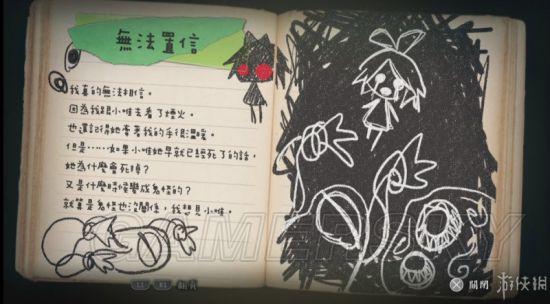 無法置信
我真的無法相信。
因為我跟小唯去看了煙火。
也還記得她牽著我的手很溫暖。
但是……如果小唯她早就已經死了的話，
她為什麼會死掉？
又是什麼時候變成鬼怪的？
就算是鬼怪也沒關係，我想見小唯。
GAMERSKY
L1 R1 翻頁
關閉
游侠網